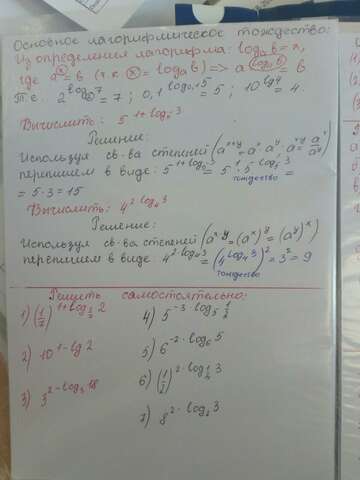 Основное логарифмическое тождество:
Из определения логарифма: logₐb = x,
где aˣ = b (т.к. x = logₐb) => a^(logₐb) = b
Т.е. 2^(log₂7) = 7; 0,1^(log₀,₁5) = 5; 10^(lg4) = 4.
Вычислить: 5^(1+log₅3)
Решение:
Используя св-ва степеней (a^(x+y) = a^x · a^y; a^(x-y) = a^x/a^y)
перепишем в виде: 5^(1+log₅3) = 5^1 · 5^(log₅3) =
тождество
= 5·3 = 15
Вычислить: 4^(2·log₄3)
Решение:
Используя св-ва степеней (a^(x·y) = (a^x)^y = (a^y)^x)
перепишем в виде: 4^(2·log₄3) = (4^(log₄3))^2 = 3^2 = 9
тождество
Решить самостоятельно:
1) (1/7)^(1+log_(1/7)2)
2) 10^(1-lg2)
3) 3^(2-log₃18)
4) 5^(-3·log₅(1/2))
5) 6^(-2·log₆5)
6) (1/2)^(2·log_(1/2)3)
7) 8^(2·log₈3)